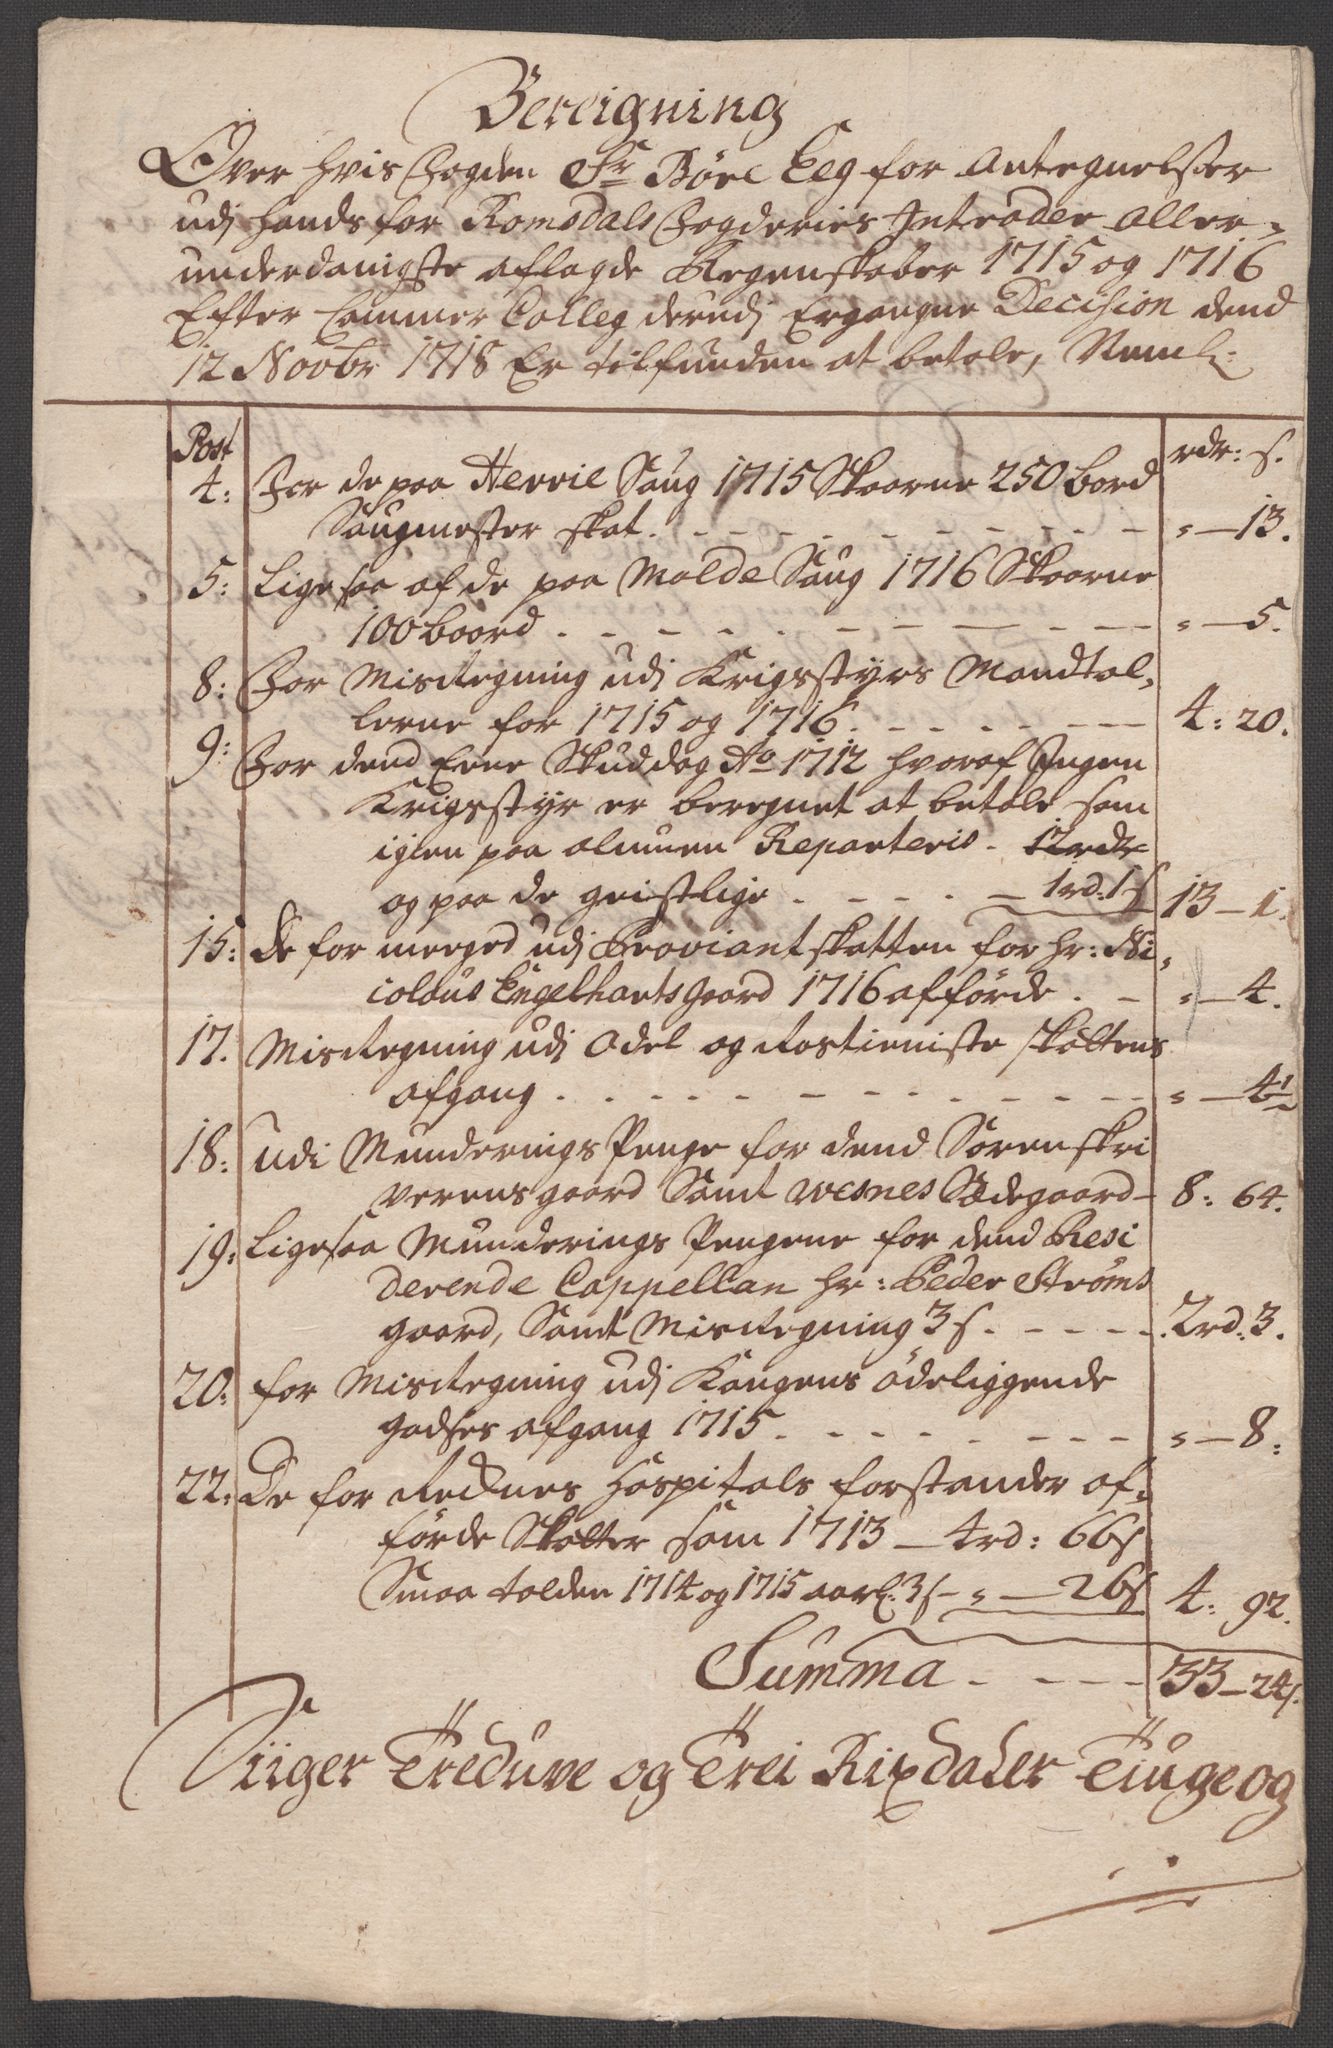 Bereigning
Over hvis Fogden Sr Böre Eeg for Antegnelsser
udj hands for Romsdals Fogderies Intrader aller-
underdanigste aflagde Regenskaber 1715 og 1716
Efter Cammer Colleg derudj Ergangne Decision dend
12 Novbr 1718 Er tilfunden at betale, Neml:
Post
rdr: s.
4: For de paa Herrie Saug 1715 Skaarne 250 bord
Saugmester skat. " — 13.
5: Ligesaa af de paa Molde Saug 1716 Skaarne
100 boord " — 5.
8: For Misregning udj Krigsstyrs Mandtal,
lerne for 1715 og 1716. 4: 20.
9: For dend Eene Skuddag Ao 1712 hvoraf Ingen
Krigsstyr er beregnet at betale som
igien paa almuen Reparteris. 12 rdr
og paa de geistlige — 1rd: 1s 13 — 1.
15: De for meeged udj Proviantskatten for hr: Ni,
colaus Engelharts gaard 1716 afförde. " — 4.
17. Misregning udj Odel og Rostieniste skattens
afgang " — 4½
18: udi Munderings Penge for dend Sorenskri
verens gaard Samt wesnes Sædegaard 8: 64.
19: Ligesaa Munderings Pengene for dend Resi
derende Cappellan hr: Peder Ströms
gaard, Samt Misregning 3 s. 2rd: 3.
20: for Misregning udj Kongens ödeliggende
godses afgang 1715 " — 8:
22: De for Recknes Hospitals forstander af-
förde Skatter som 1713 — 4rd: 66s
Smaa tolden 1714 og 1715 aarl: 3s — " — 26s 4: 92.
Summa 33 — 24s.
Siiger Treduve og Trei Rixdaler Tiuge og